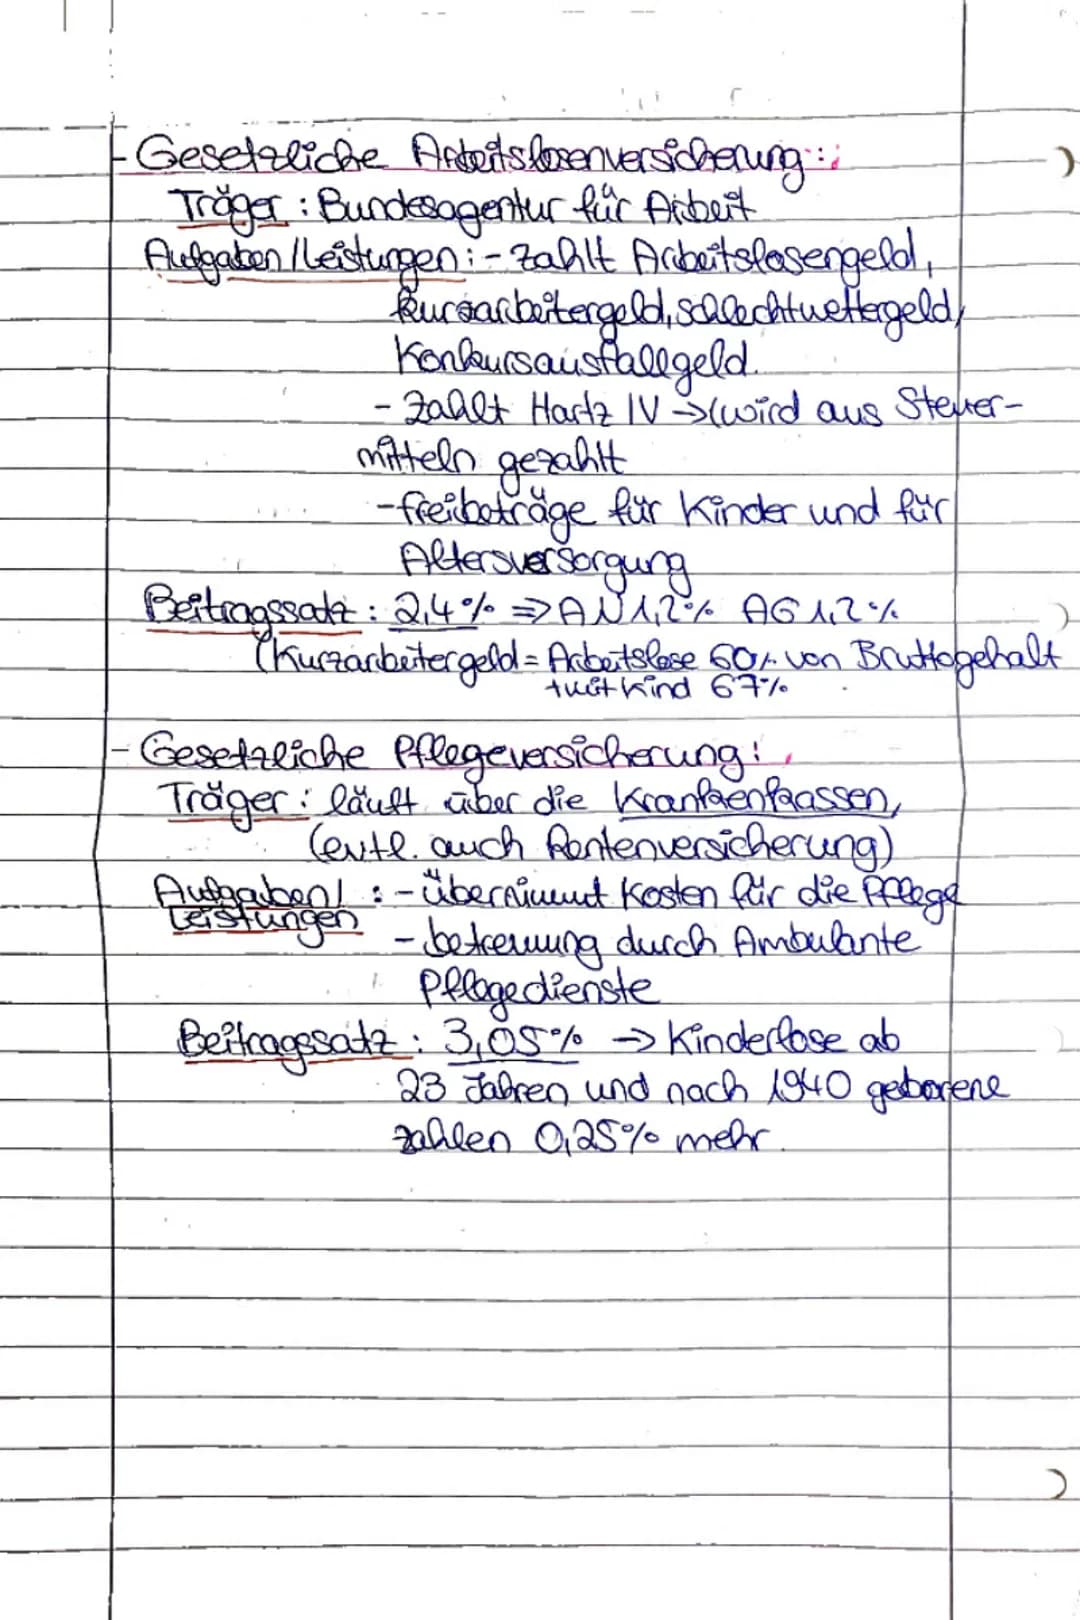 - Gesetzliche Arbeitslosenversicherung:
Träger: Bundesagentur für Arbeit
Aufgaben/Leistungen: - zahlt Arbeitslosengeld,
Kurzarbeitergeld, schlechtwettergeld,
Konkursausfallgeld.
- Zahlt Hartz IV → (wird aus Steuer-
mitteln gezahlt
- freibeträge für Kinder und für
Altersversorgung
Beitragssatz: 2,4% ⇒ AN 1,2% AG 1,2%
(Kurzarbeitergeld = Arbeitslose 60% von Bruttogehalt
+ mit Kind 67%
- Gesetzliche Pflegeversicherung:
Träger: läuft über die Krankenkaassen,
(evtl. auch Rentenversicherung)
Aufgaben/ : - übernimmt Kosten für die Pflege
Leistungen
- betreuung durch Ambulante
Pflegedienste
Beitragssatz: 3,05% → Kinderlose ab
23 Jahren und nach 1940 geborene
zahlen 0,25% mehr.